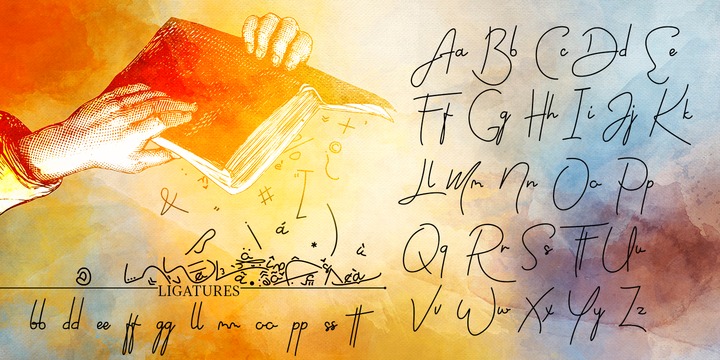 Aa Bb Cc Dd Ee
Ff Gg Hh Ii Jj Kk
Ll Mm Nn Oo Pp
Qq Rr Ss Tt Uu
Vv Ww Xx Yy Zz
&
#
á
*
à
LIGATURES
bb dd ee ff gg ll mm oo pp ss tt